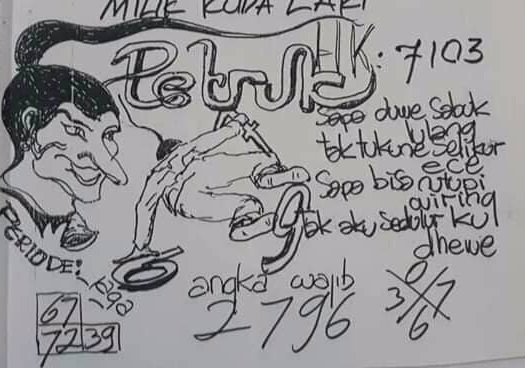 MILIK KUDA LARI
Petruk HK: 7103
Sapa duwe Sabuk
lulang
tak tukune Selikur
ece
Sapa bisa nutupi
wiring
tak aku Sedulur kul
dhewe
PERIODE:
6 9
angka wajib
2796
0
3 X 7
6
67
72 39